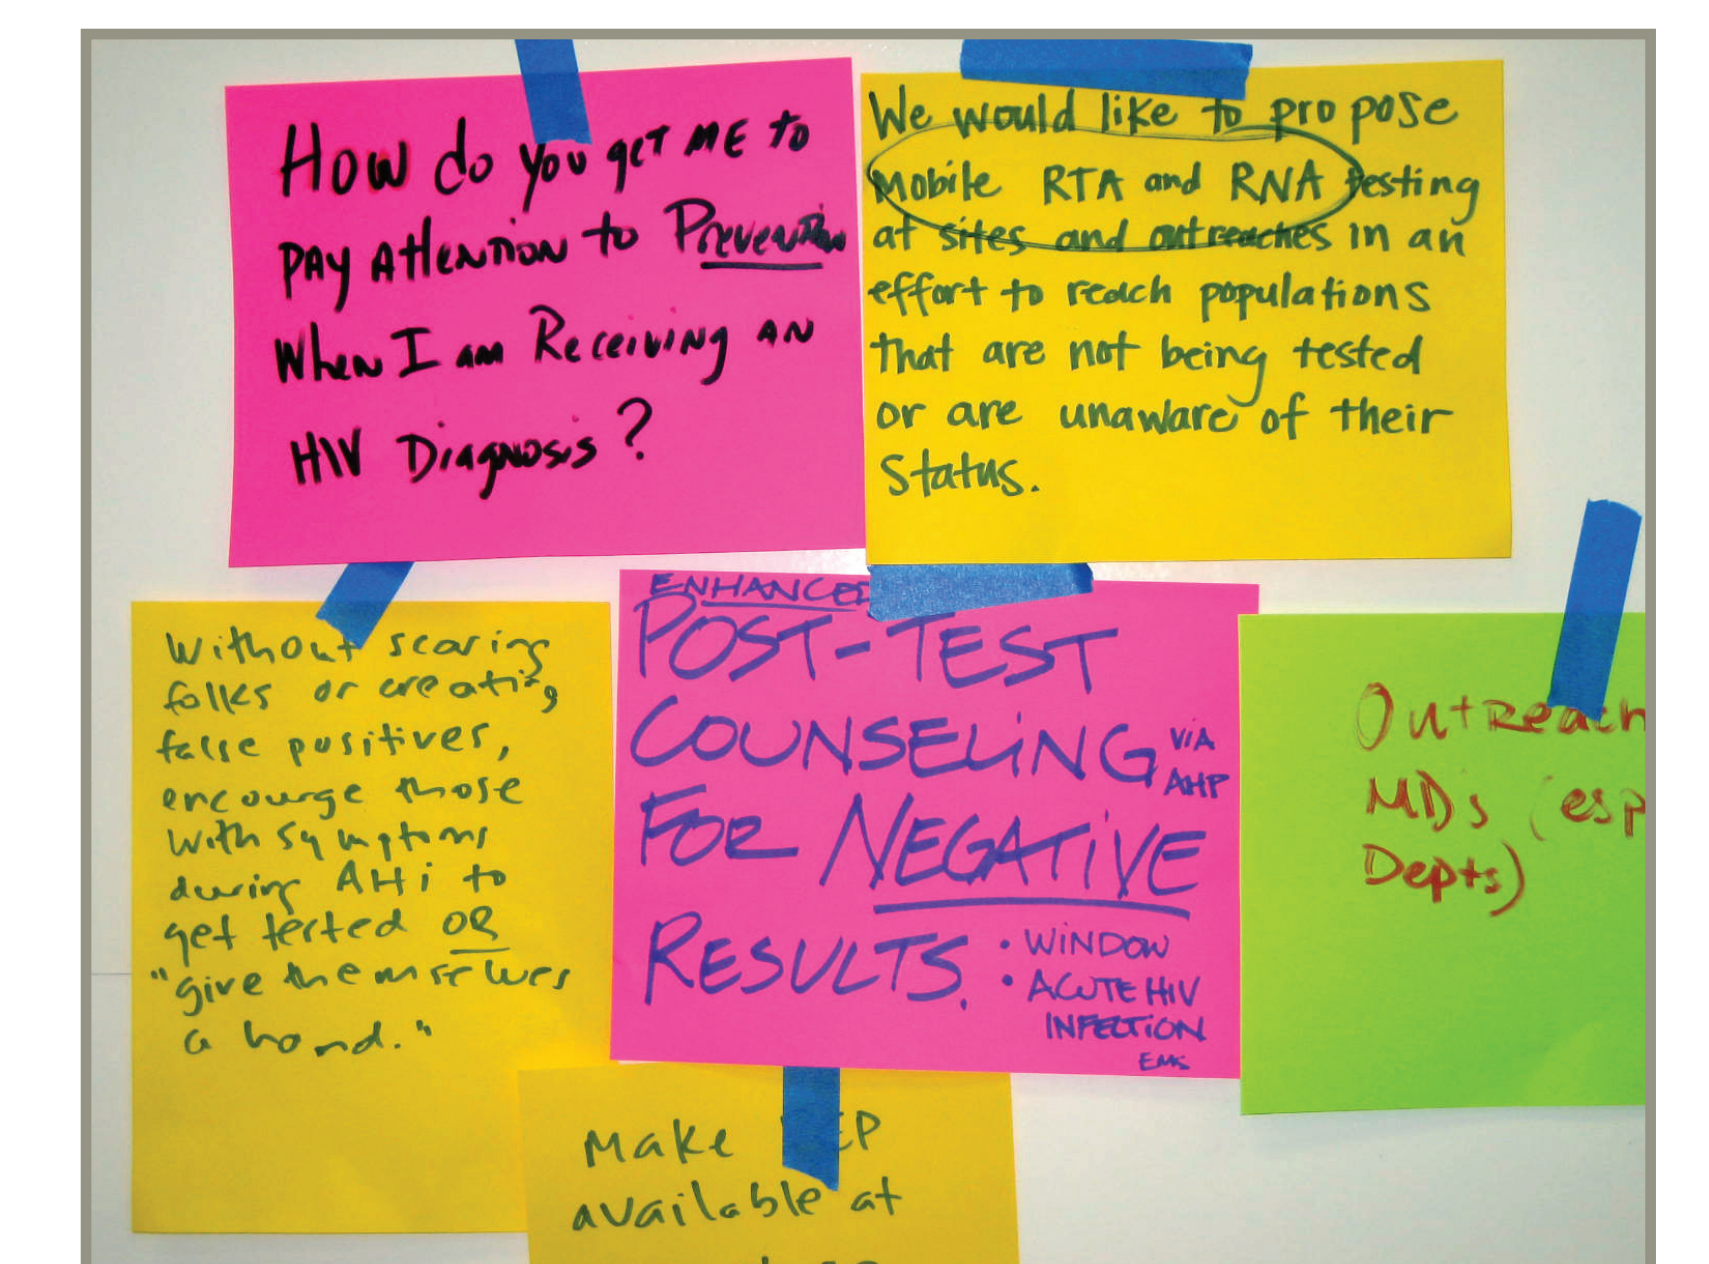 How do you get ME to
PAY Attention to Prevention
When I am Receiving an
HIV Diagnosis?
We would like to propose
mobile RTA and RNA testing
at sites and outreaches in an
effort to reach populations
that are not being tested
or are unaware of their
status.
Without scaring
folks or creating
false positives,
encourge those
with symptoms
during AHi to
get tested OR
"give themselves
a hand."
ENHANCED
POST-TEST
COUNSELING VIA
AHP
FOR NEGATIVE
RESULTS.
• WINDOW
• ACUTE HIV
INFECTION
Outreach
MDs (esp
Depts)
Make EP
available at